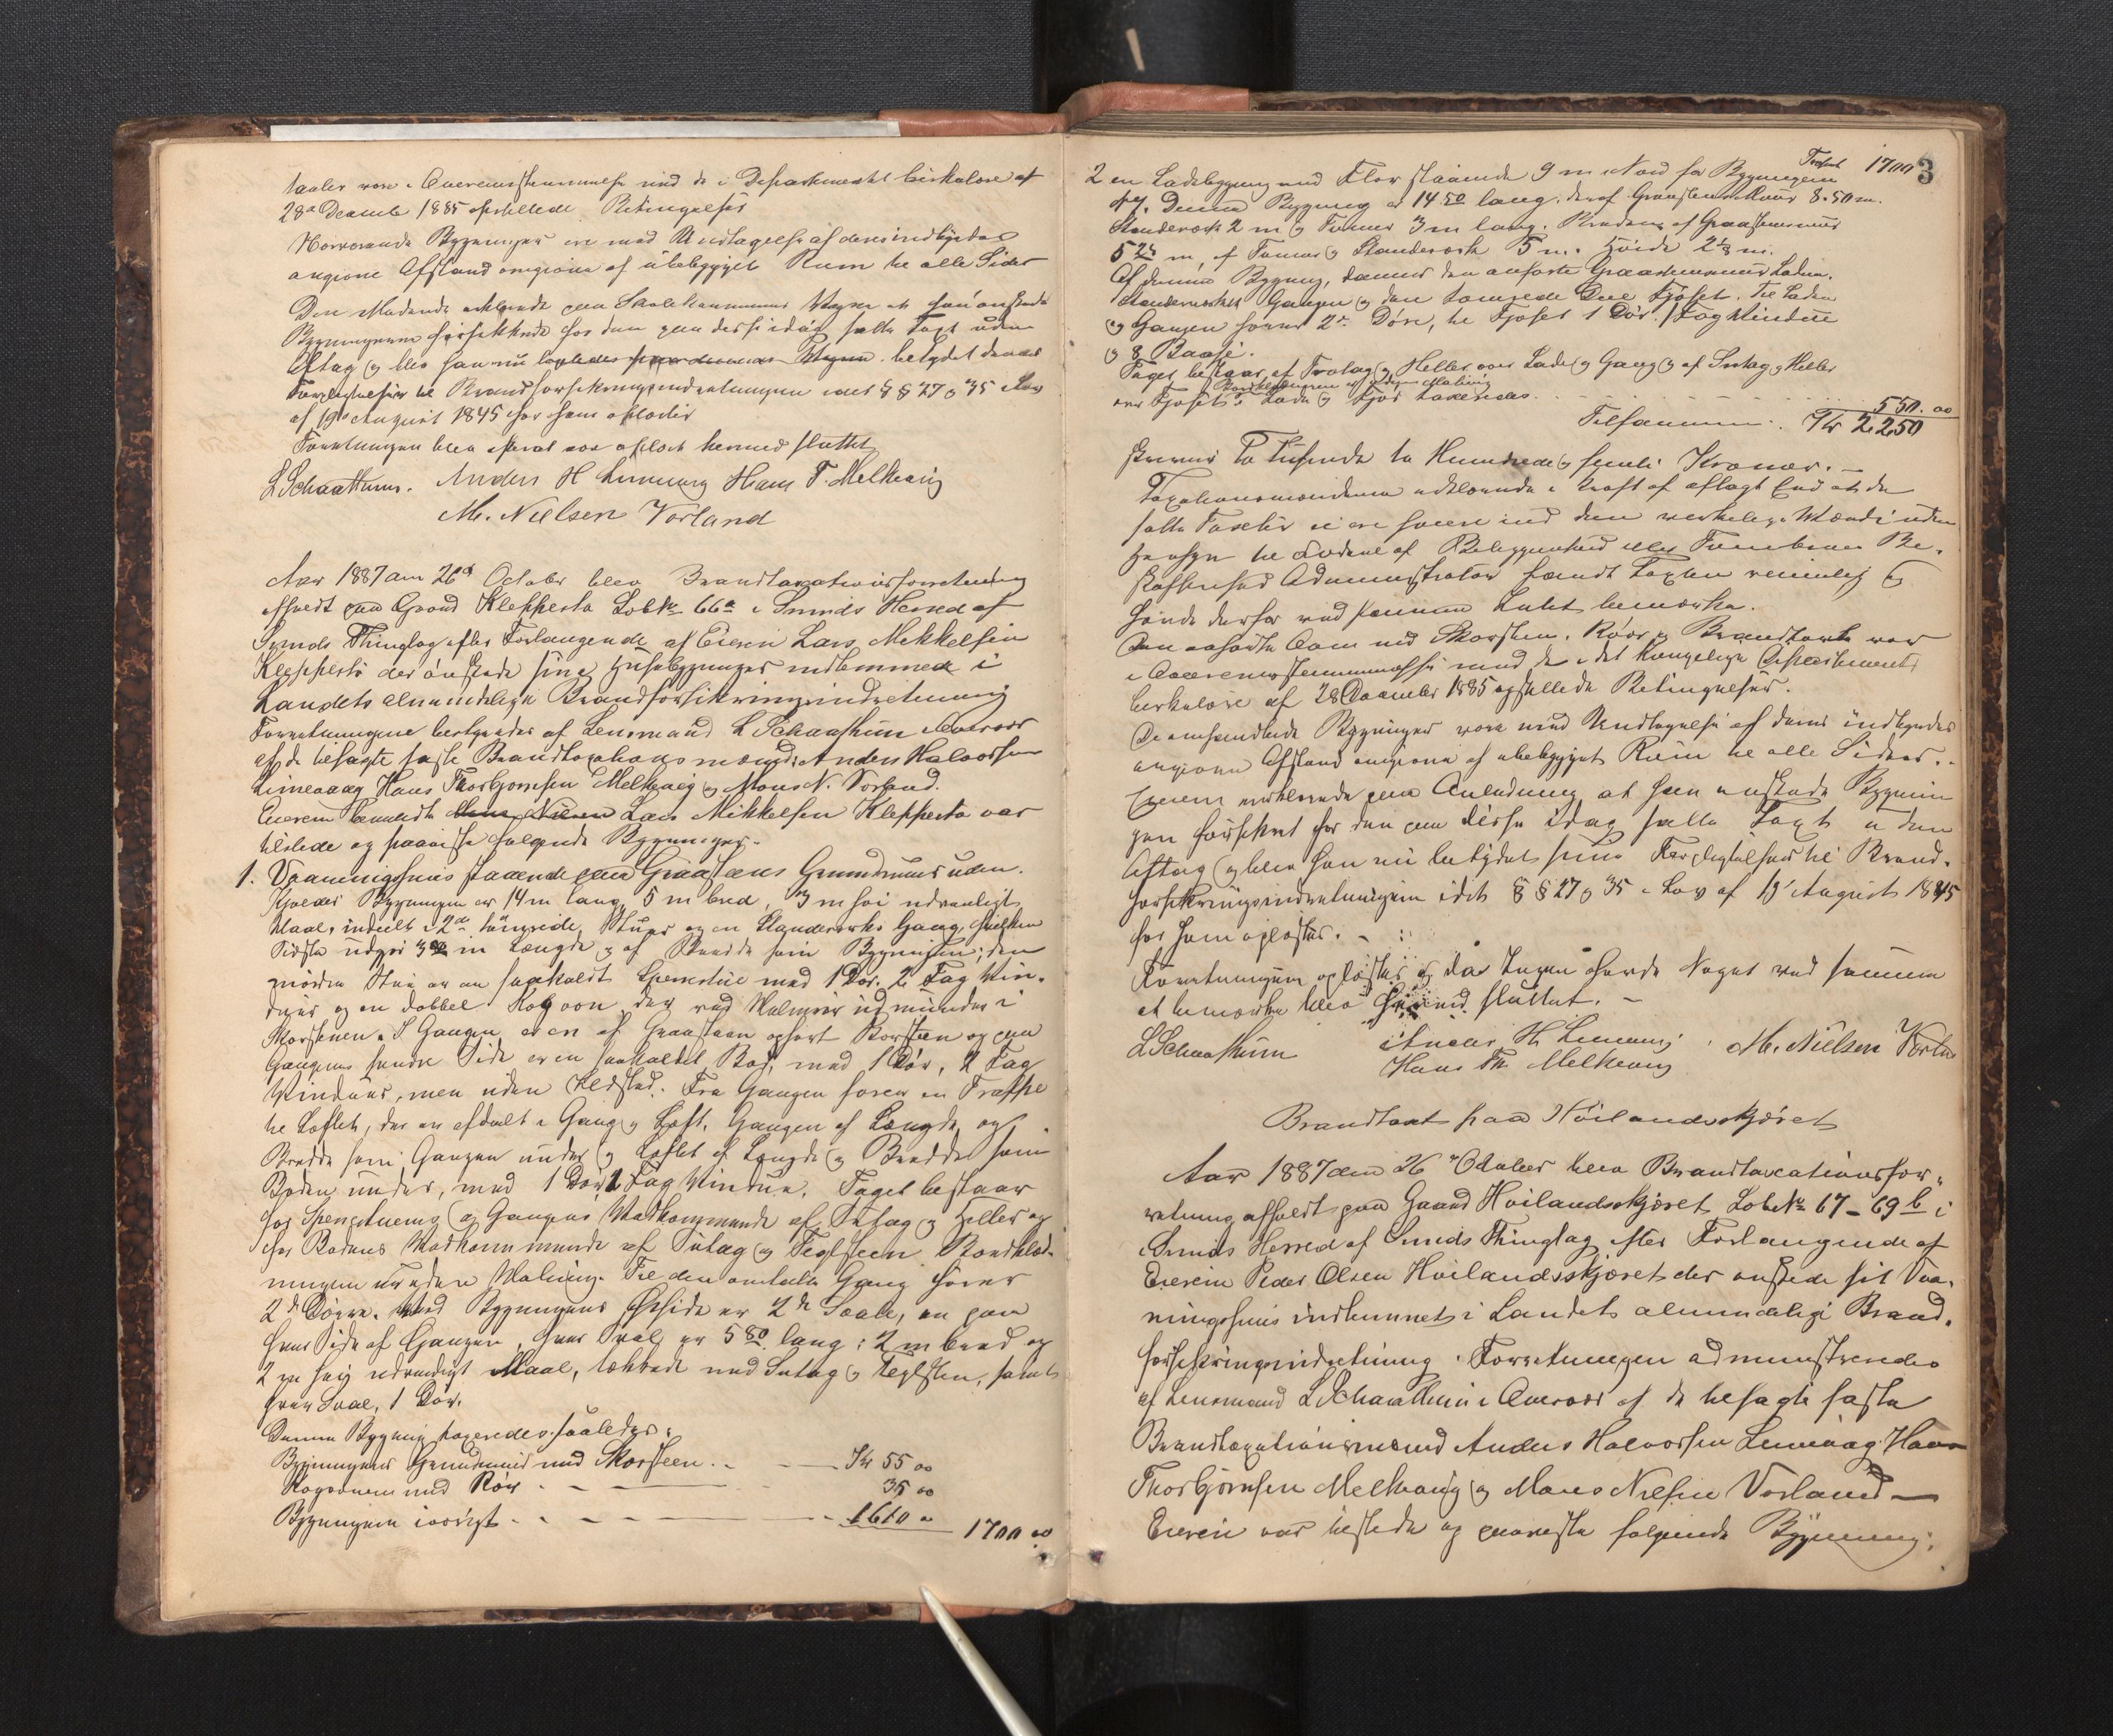 taaler vore i Overensstemmelse med de i Departementets Cirkulære af
28de Decemb 1885 opstillede Betingelser
Nærværende Bygninger ere med Undtagelse af deres indbyrdes
angivne Afstand omgivne af ubebygget Rum til alle Sider
Den Mødende erklærede paa Skolekommunens Vegne at han ønskede
Bygningerne forsikkrede for den paa disse idag satte Taxt uden
Aftag og blev han nu betydet dennes
Forpligtelser til Brandforsikringsindretningen idet § § 27 og 35 i Lov
af 19de August 1845 for ham oplæstes
Forretningen blev oplæst hermed sluttet
L Schaathun. Anders H Limevaag Hans T. Melkevig
M. Nielsen Vorland
Aar 1887 den 26d October blev Brandtaxationsforretning
afholdt paa Gaard Kleppestø Løbe No 66a i Sunds Herred af
Sunds Thinglag efter Forlangende af Eieren Lars Mikkelsen
Kleppestø der ønskede sine Huusbygninger indlemmede i
Landets almindelige Brandforsikringsindretning
Forretningen bestyredes af Lensmand L Schaathun i Overvær
af de beskikkede faste Brandtaxationsmænd: Anders Halvorsen
Limevaag Hans Thorbjørnsen Melkevig og Mons N. Vorland.
Eieren Lars Mikkelsen Kleppestø var
tilstede og paaviste følgende Bygninger.
1. Vaaningshuus staaende paa Graasteens Grundmuur uden
Kjelder Bygningen er 14 m lang, 5 m bred, 3 m høi udvendigt
Maal, inddeelt i 2de Stuer og en Standerværks Gang, hvilken
Sidste udgjør m i Længde og af Bredde som Bygningen; den
nordre Stue er en saakaldt Spenestue med 1 Dør. 2 Fag Vin-
duer og en dobbel Kogovn der ved Malmrør udmunder i
Skorstenen. I Gangen er en af Graasteen opført Skorsteen og paa
Gangens søndre Side er en saakaldet Bod, med 1 Dør, 2 Fag
Vinduer, men uden Ildsted. Fra Gangen fører en Trappe
til Loftet, der er afdeelt i Gang og Loft. Gangen af Længde og
Bredde som Gangen under og Loftet af Længde og Bredde som
Boden under, med 1 Dør 1 Fag Vindue. Taget bestaar
for Spenestuens og Gangens Vedkommende af Sutag og Heller og
for Bodens Vedkommende af Sutag og Teglsteen. Bordklæd-
ningen er uden Maling. Til den omtalte Gang hører
2de Døre. Ved Bygningens Østside er 2de Svale, en paa
hver Side af Gangen, hver Sval er 5 80 lang: 2 m bred og
2 m høi udvendigt Maal, tækkede med Sutag og Teglsten, samt
hver Sval, 1 Dør.
Denne Bygning taxeredes saaledes:
Bygningens Grundmuur med Skorsteen . . — Kr 55 00
Kogovnen med Rør . — — 35 00
Bygningen iøvrigt . . — — 1610 " 1700 00
Transport 1700 3
2 en Ladebygning med Flor staaende 9 m Nord for Bygningen
No 1. Denne Bygning er 14 50 lang, deraf Graastensmuur 8.50 m.
Standeværk 2 m og Tømmer 3 m lang. Bredden af Graasteensmuur
m, af Tømmer og Standerværk 5 m. Høide 2 ½ m.
Af denne Bygning, danner den anførte Graasteensmuur Laden.
Standerværket Gangen og den tømrede Deel Fjøset. Til Laden
og Gangen hører 2de Døre, til Fjøset 1 Dør. 1 Fag Vindue
og 8 Baase.
Taget bestaar af Trotag og Heller over Lade og Gang og af Sutag og Heller
Bordklædningen er uden Maling
over Fjøset. Lade og Fjøs taxeredes . . . . 550.00
Tilsammen . Kr 2250
skriver To Tusinde to Hundrede og femti Kroner. —
Taxationsmændene erklærede i Kraft af aflagt Eed at de
satte Taxter ei ere høiere end den verkelige Værdi uden
Hensyn til Godhed af Beliggenhed eller Tomternes Be-
skaffenhed Administrator fandt Taxten rimelig og
havde derfor ved samme Intet bemærke.
Den anførte Ovn med Skorsten, Rør og Brandtavle var
i Overensstemmelse med de i det Kongelige Departements
Cirkulære af 28 December 1885 opstillede Betingelser.
De omhandlede Bygninger vare med Undtagelse af deres indbyrdes
angivne Afstand omgivne af ubebygget Rum til alle Sider.
Eieren erklærede paa Anledning at han ønskede Bygnin
gen forsikret for den paa disse idag satte Taxt uden
Aftag og blev han nu betydet sine Forpligtelser til Brand-
forsikringsindretningen idet § § 27 og 35 i Lov af 19' August 1845
for ham oplæstes. —
Forretningen oplæstes og da Ingen havde Noget ved samme
at bemærke blev hermed sluttet. —
L Schaathun Anders H. Limevaag M. Nielsen Vorland
Hans Th. Melkevig
Brandtaxt paa Høilandsskjæret
Aar 1887 den 26de October blev Brandtaxationsfor-
retning afholdt paa Gaard Høilandsskjæret Løbe No 67-69 b i
Sunds Herred af Sunds Thinglag efter Forlangende af
Eieren Peder Olsen Høilandsskjæret der ønskede sit Vaa-
ningshuus indlemmet i Landets almindelige Brand-
forsikringsindretning. Forretningen administreredes
af Lensmand L Schaathun i Overvær af de beskikkede faste
Brandtaxationsmænd Anders Halvorsen Limevaag. Hans
Thorbjørnsen Melkevig og Mons Nielsen Vorland —
Eieren var tilstede og paaviste følgende Bygning: